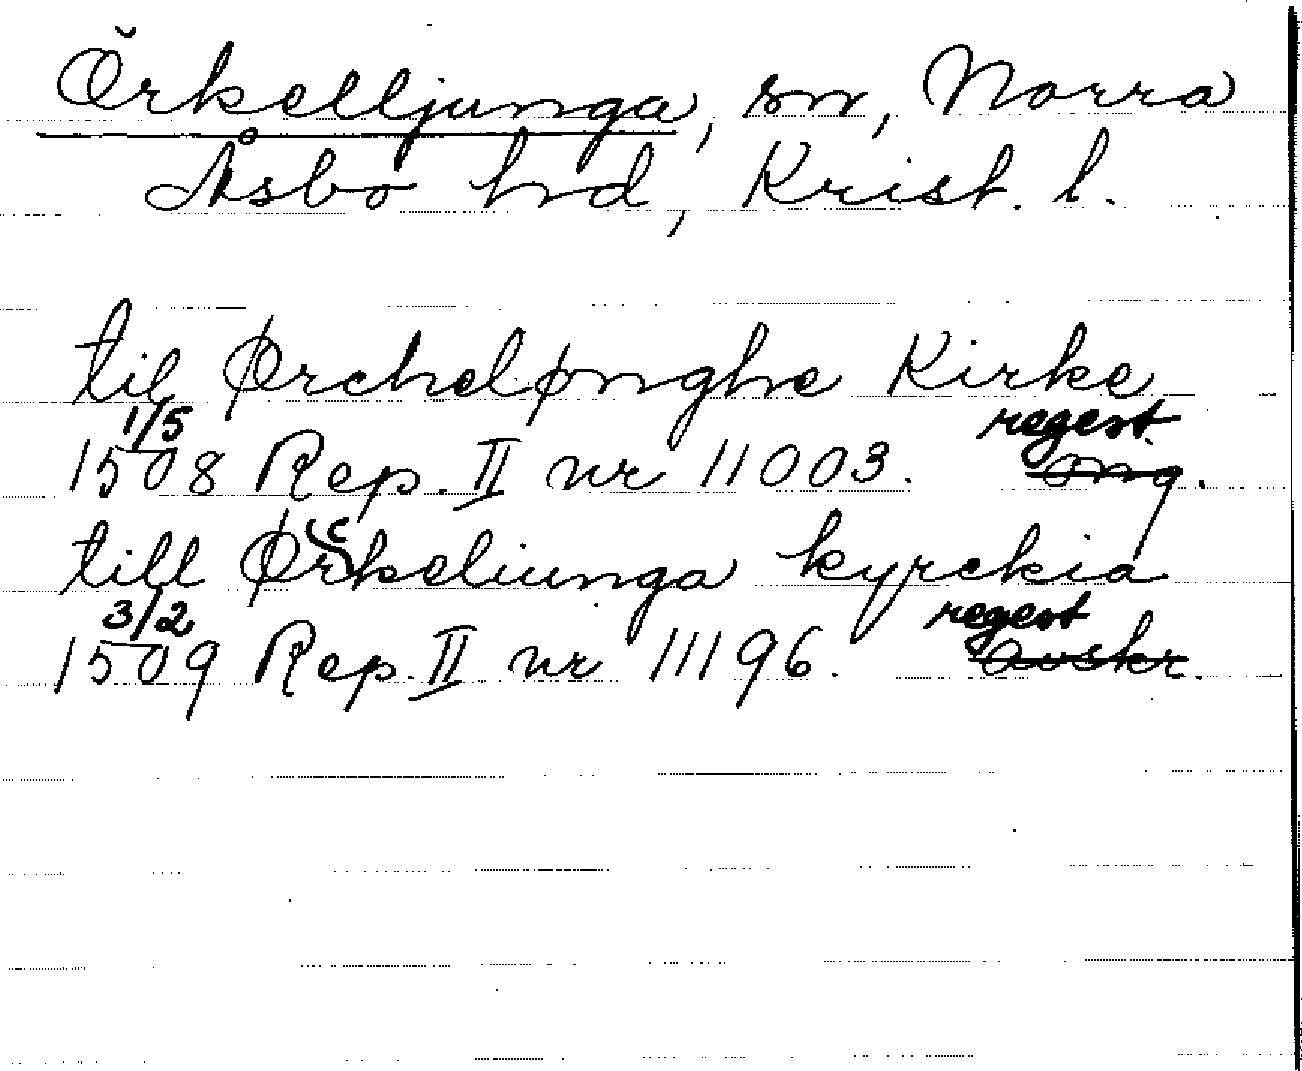 Örkelljunga, sn, Norra
Åsbo hd, Krist. l.
til Ørchelønghe Kirke
1/5 regest.
1508 Rep. II nr 11003. org.
till Ørckeliunga kyrckia
3/2 regest
1509 Rep. II nr 11196. avskr.